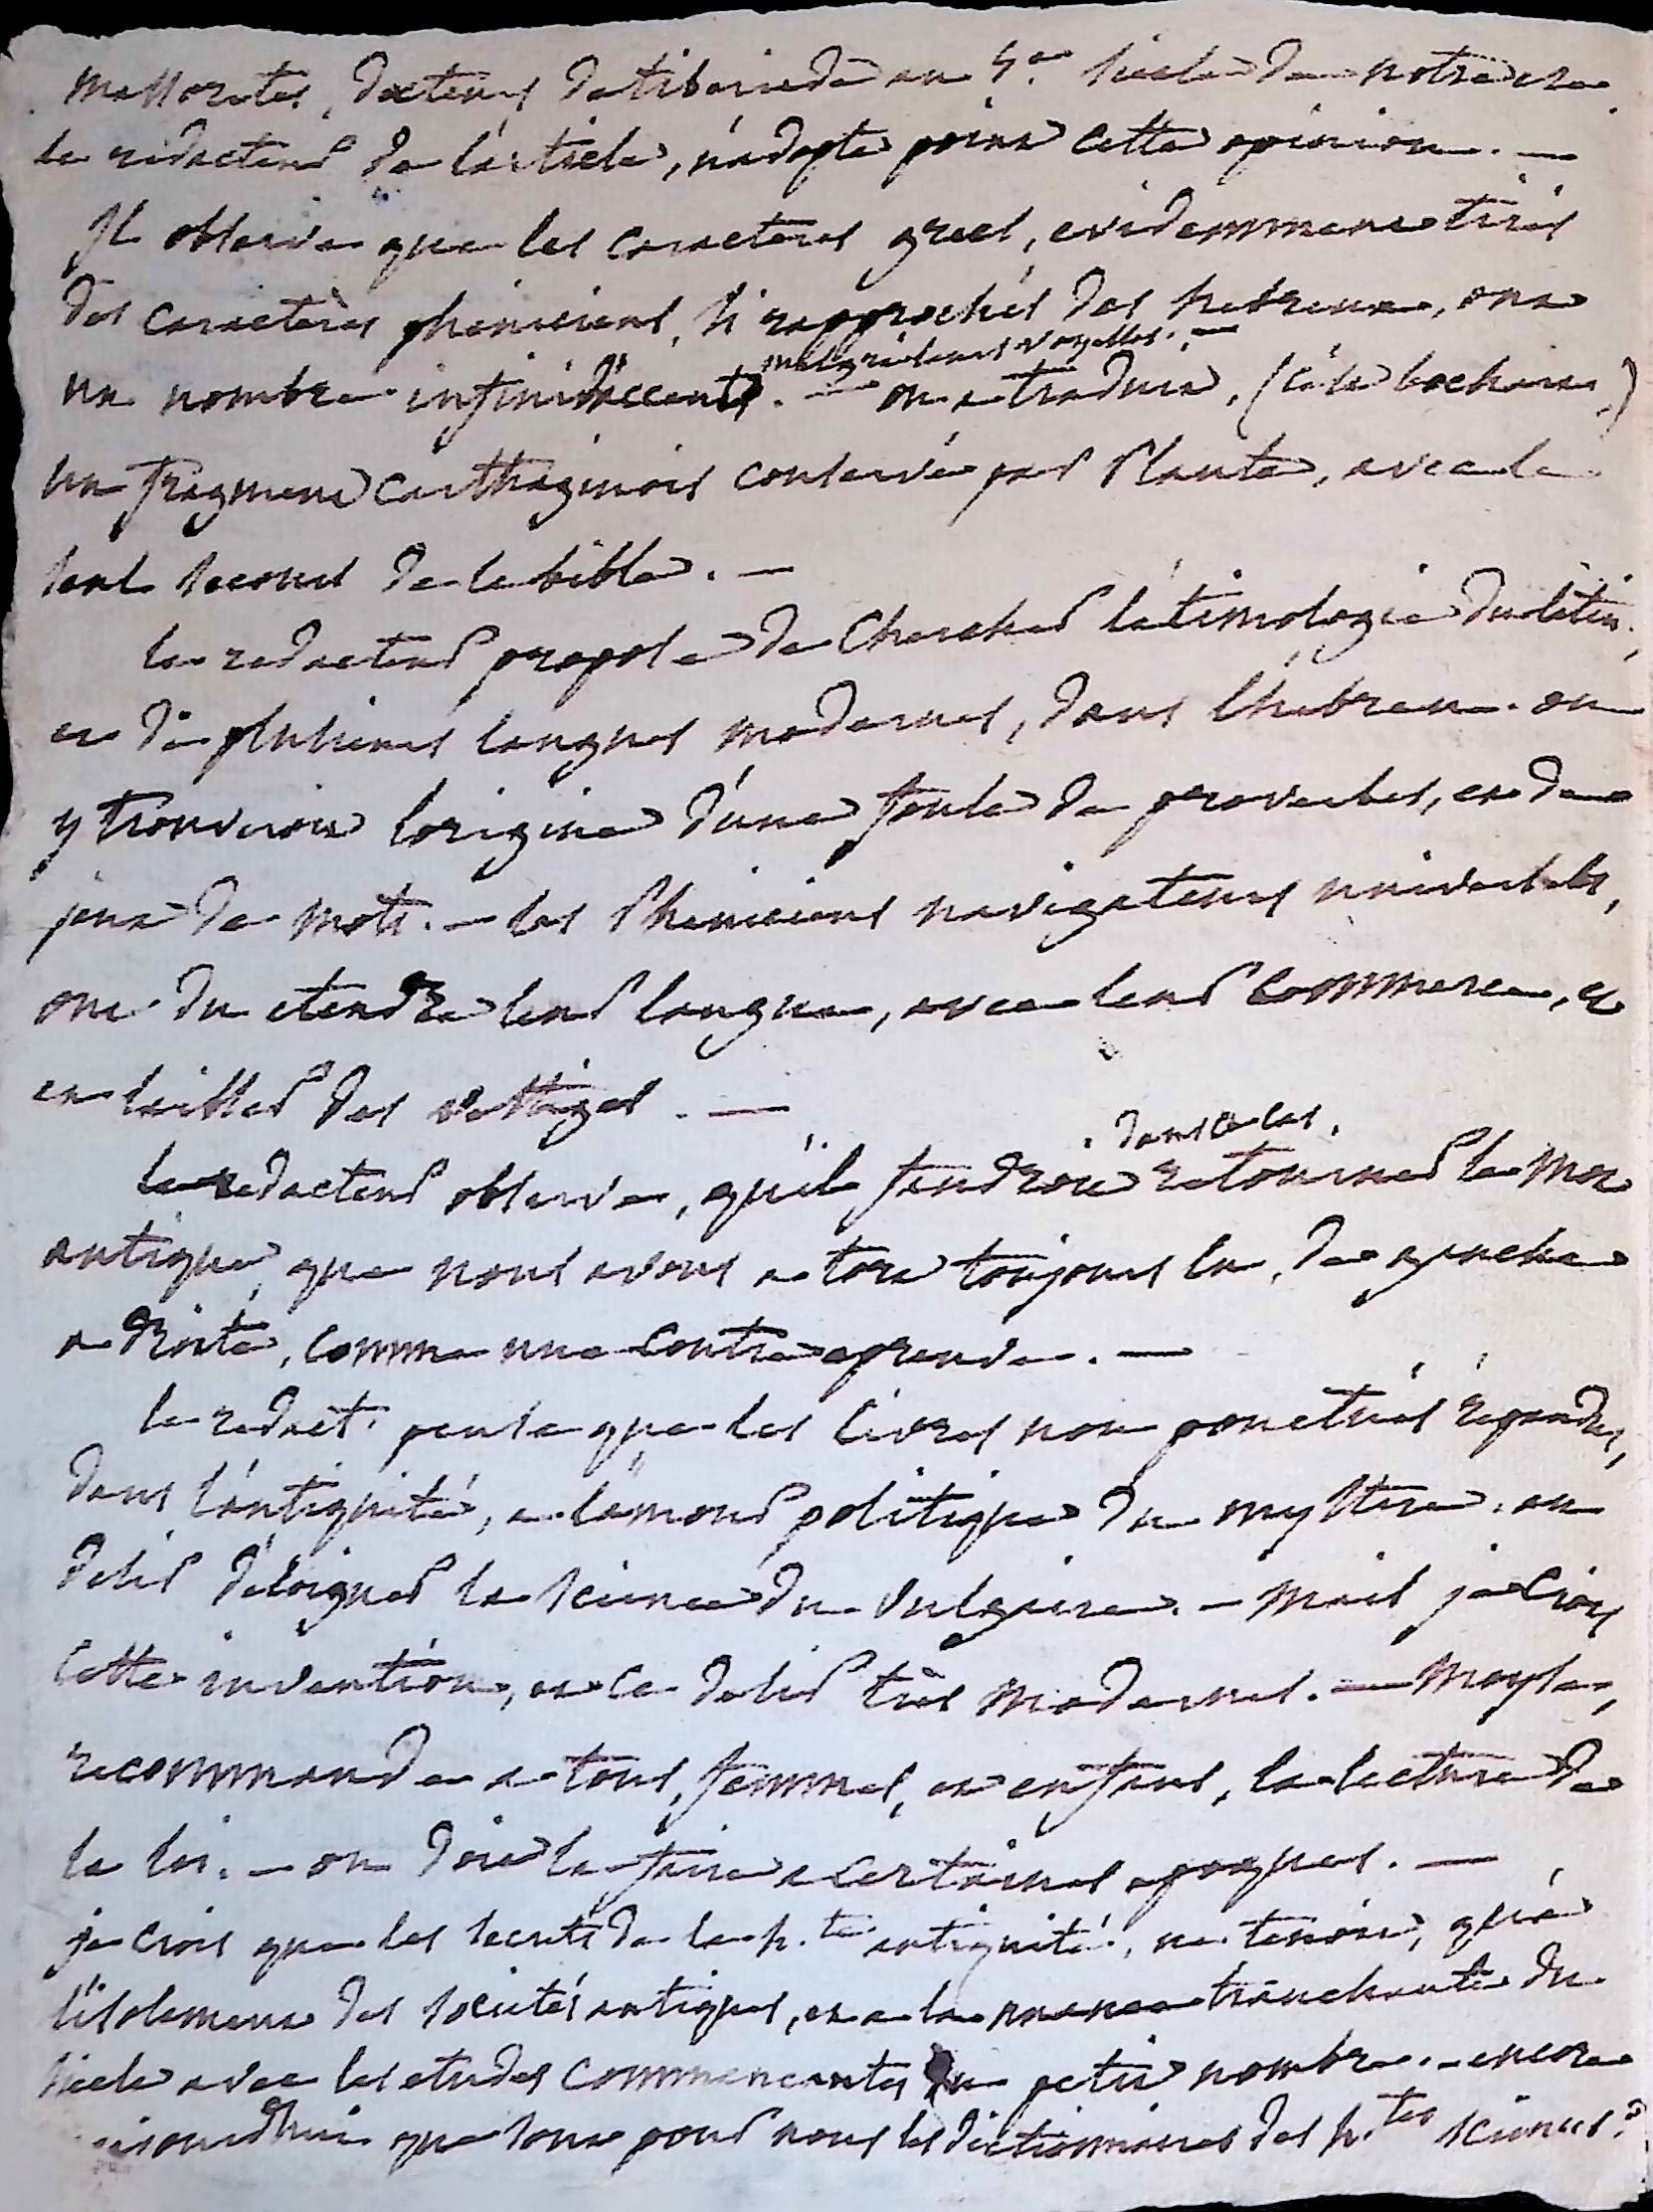 massoretes, docteurs de tiberiade au 5e. siecle de notre ere
le redacteur de l'article, n'adopte point cette opinion. —
Il observe que les caracteres grecs, evidemment tirés
des caractères pheniciens, si rapprochés des hebreux, ont
malgré leurs voyelles. —
un nombre infini d'accents. — on a traduit, (c'est bochart,)
un fragment carthaginois conservé par Plaute, avec le
seul secours de la bible. —
le redacteur propose de chercher l'étimologie du latin,
et de plusieurs langues modernes, dans l'hebreu. on
y trouveroit l'origine d'une foule de proverbes, et de
jeux de mots. — les Pheniciens navigateurs universels,
ont du etendre leur langue, avec leur commerce, et
en laisser des vestiges. —
dans ce cas,
le redacteur observe, qu'il faudroit retourner le mot
antique, que nous avons a tort toujours lu, de gauche
a droite, comme une contre epreuve. —
le redact. pense que les livres non ponctués repandus,
dans l'antiquité, a l'amour politique du mystere, au
desir d'éloigner la science du vulgaire. — mais je crois
cette invention, et ce desir très modernes. — Moyse,
recommande a tous, femmes, et enfans, la lecture de
la loi. — on doit la faire a certaines epoques. —
je crois que les secrets de la h.te antiquité, ne tenoient, qu'à
l'isolement des societés antiques, et a la nuance tranchante du
siecle avec les etudes commencantes du petit nombre. — encore
aujourdhui que sont pour nous les dictionnaires des h.tes sciences ?